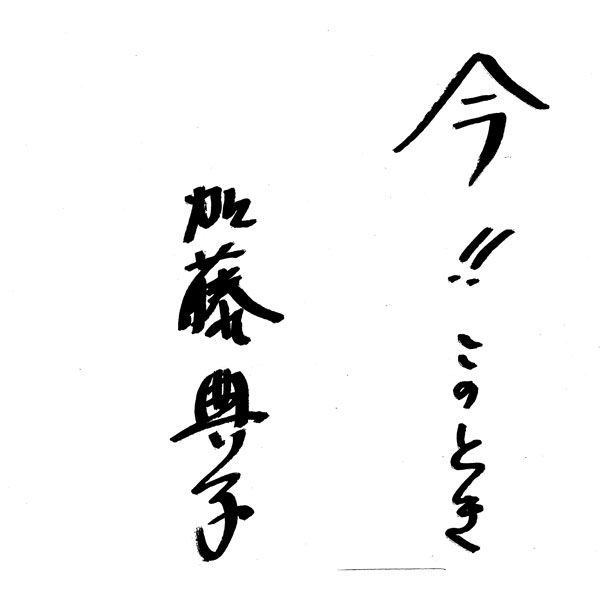 今!!このとき
加藤典子